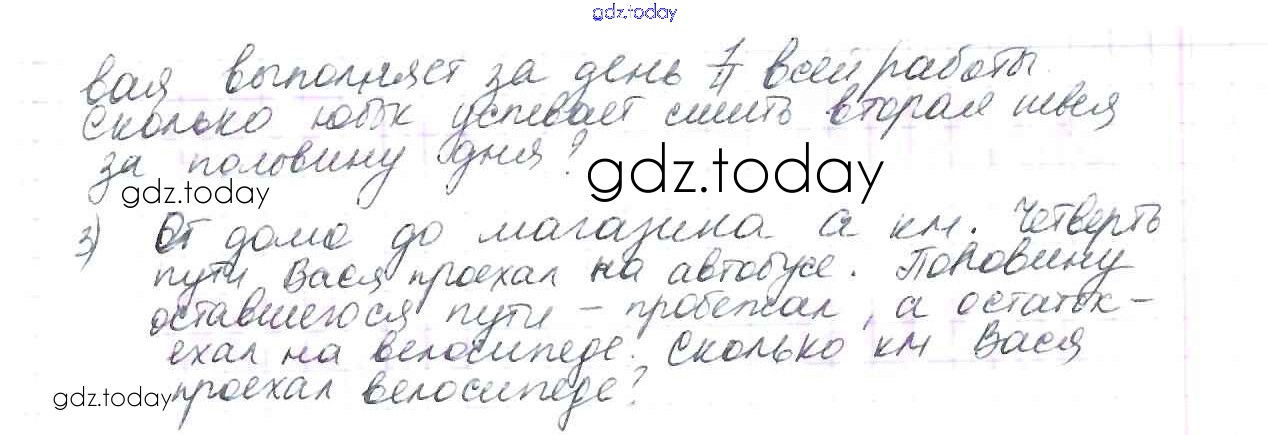 gdz.today
вая выполняет за день 1/4 всей работы.
Сколько юбок успевает сшить вторая швея
за половину дня?
gdz.today
gdz.today
3) От дома до магазина а км. Четверть
пути Вася проехал на автобусе. Половину
оставшегося пути – пробежал, а остаток –
ехал на велосипеде. Сколько км Вася
проехал велосипеде?
gdz.today